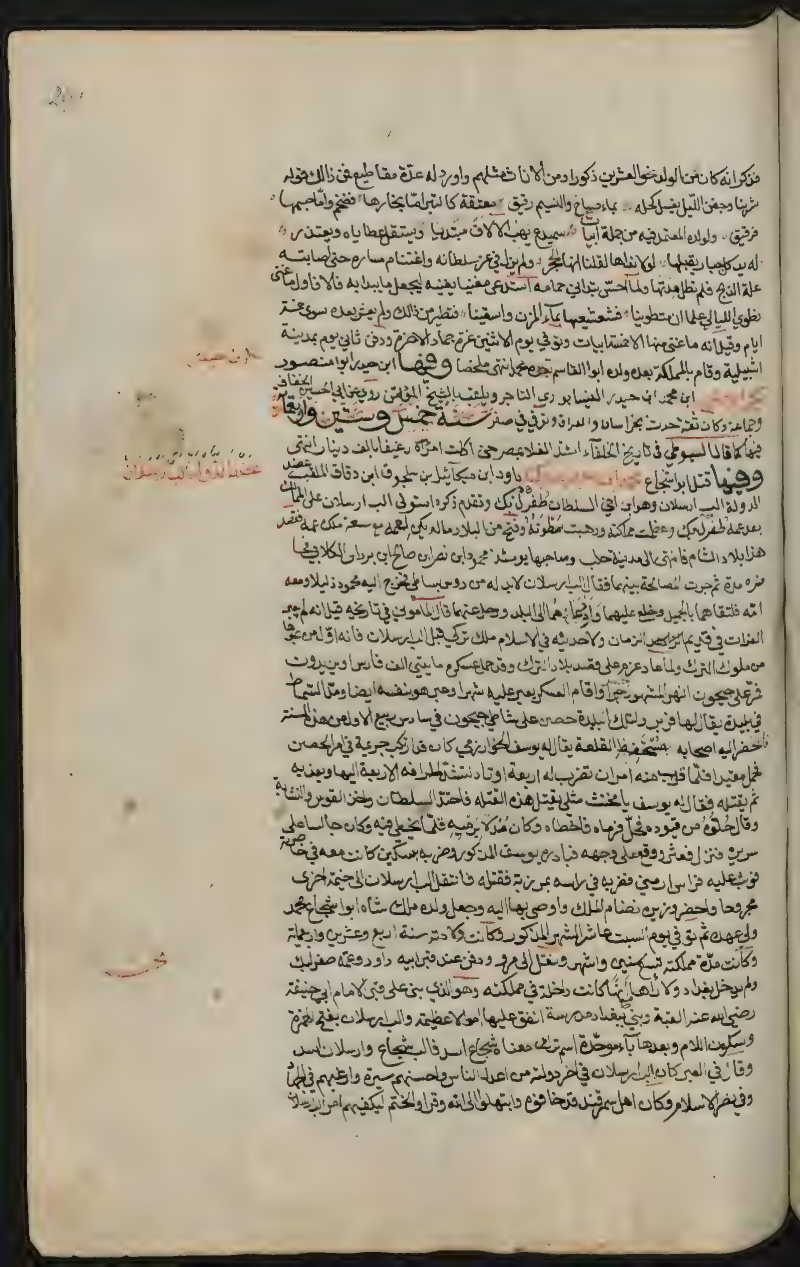 فذكر انه كان من الولد نحو العشرين ذكورا ومن الاناث مثلهم واورد له عدة مقاطيع فمن ذالك قوله
شربنا وجفن الليل يغسل كحله بماء صباح والنسيم رقيق معتقة كالتبر اما بخارها فضخم واما جسمها
فرقيق ولولده المعتمد فيه من جملة ابيات سميدع يهب الالاف مبتديا ويستقل عطاياه ويعتذر
له يد كل جبار يقبلها لولا نداها لقلنا انها الحجر ولم يزل في عز سلطانه واغتنام مساره حتى اصابته
علة الذبح فلم تطل مدتها ولما احس بتداني حمامه استدعى مغنيا يغنيه ليجعل ما يبدا به فالا فاول ما غنى
نطوي الليالي علما ان ستطوينا فشعشعيها بماء المزن واسقينا فتطير من ذالك ولم يعش بعده سوى خمسة
ايام وقيل انه ما غنى منها الا خمسة ابيات وتوفي يوم الاثنين غرة جماد الاخرة ودفن ثاني يوم بمدينة
اشبيلية وقام بالمملكة بعده ولده ابوا القاسم محمد انتهى ملخصا وفيها ابن حيدر ابوا منصور
ابن محمد ابن حيدر النيسابوري التاجر ويلقب بالشيخ المؤتمن روى عن ابي الحسين الخفاف
وجماعة وكان ثقة حدث بخراسان والعراق وتوفي في صفر سنة خمس وستين واربعمائة
فيها كما قال السيوطي في تاريخ الخلفاء اشتد الغلاء بمصر حتى اكلت امراة رغيفا بالف دينار انتهى
وفيها قتل ابوا شجاع داود ابن ميكائيل ابن سلجوق ابن دقاق الملقب عضد
الدولة الب ارسلان وهو ابن اخي السلطان طغرلبك وتقدم ذكره استولى الب ارسلان على الممالك
بعد عمه طغرلبك وعظمت مملكته ورهبت سطوته وفتح من البلاد ما لم يكن لعمه مع سعة ملك عمه فقصد
هذا بلاد الشام فانتهى الى مدينة حلب وصاحبها يومئذ محمود ابن نصر ابن صالح ابن مرداس الكلابي
مدة ثم جرت المصالحة بينهما فقال الب ارسلان لابد له من دوس بساطي فخرج اليه محمود ذليلا ومعه
امه فتلقاهما بالجميل وخلع عليهما واعادهما الى البلد ورحل عنها قال الماموني في تاريخه قيل انه لم يعبر
الفرات في قديم الزمان ولا حديثه في الاسلام ملك تركي قبل الب ارسلان فانه اول من عبرها
من ملوك الترك ولما عاد عزم على قصد بلاد الترك وقد جمل عسكره مايتي الف فارس او يزيدون
فمر على جيحون النهر المشهور جسرا واقام العسكر يعبر عليه شهرا وعبر هو بنفسه ايضا ومد السماط
في بليدة يقال لها فربر ولتلك البليدة حصن على شاطي جيحون في سادس ربيع الاول من هذه السنة
فاحضر اليه اصحابه مستحفظ القلعة يقال له يوسف الخوارزمي كان قد ارتكب جريمة في امر الحصن
فحمل مقيدا فلما قرب منه امر ان تضرب له اربعة اوتاد لتشد اطرافه الاربعة اليها ويعذبه
ثم يقتله فقال له يوسف يا مخنث مثلي يقتل هذه القتلة فاحتد السلطان واخذ القوس والنشابة
وقال حلوه من قيوده فحل فرماه فاخطاه وكان مدلا برميه قلما يخطي فيه وكان جالسا على
سريره فنزل فعثر ووقع على وجهه فبادره يوسف المذكور وضربه بسكين كانت معه في خاصرته
فوثب عليه فراس ارمني فضربه في راسه بمرزبة فقتله فانتقل الب ارسلان الى خيمة اخرى
مجروحا واحضر وزيره نظام الملك واوصى بها اليه وجعل ولده ملك شاه ابوا شجاع محمد
ولي عهده ثم توفي يوم السبت عاشر الشهر المذكور وكانت ولادته سنة اربع وعشرين واربعمائة
وكانت مدة مملكته تسع سنين واشهر ونقل الى مرو ودفن عند قبر ابيه داود وعمه طغرلبك
ولم يدخل بغداد ولا رآها مع انها كانت داخلة في مملكته وهو الذي بنى على قبر الامام ابي حنيفة
رضي الله عنه القبة وبنى ببغداد مدرسة انفق عليها اموالا عظيمة والب ارسلان بفتح الهمزة
وسكون اللام وبعدها باء موحدة اسم تركي معناه شجاع اسد فالب شجاع وارسلان اسد
وقال في العبر كان الب ارسلان في اخر دولته من اعدل الناس واحسنهم سيرة وارغبهم في الجهاد
وفي نصر الاسلام وكان اهل سمرقند قد خافوه وابتهلوا الى الله وقراوا الختم ليكفيهم امر الب ارسلان
عضد الدولة الب ارسلان